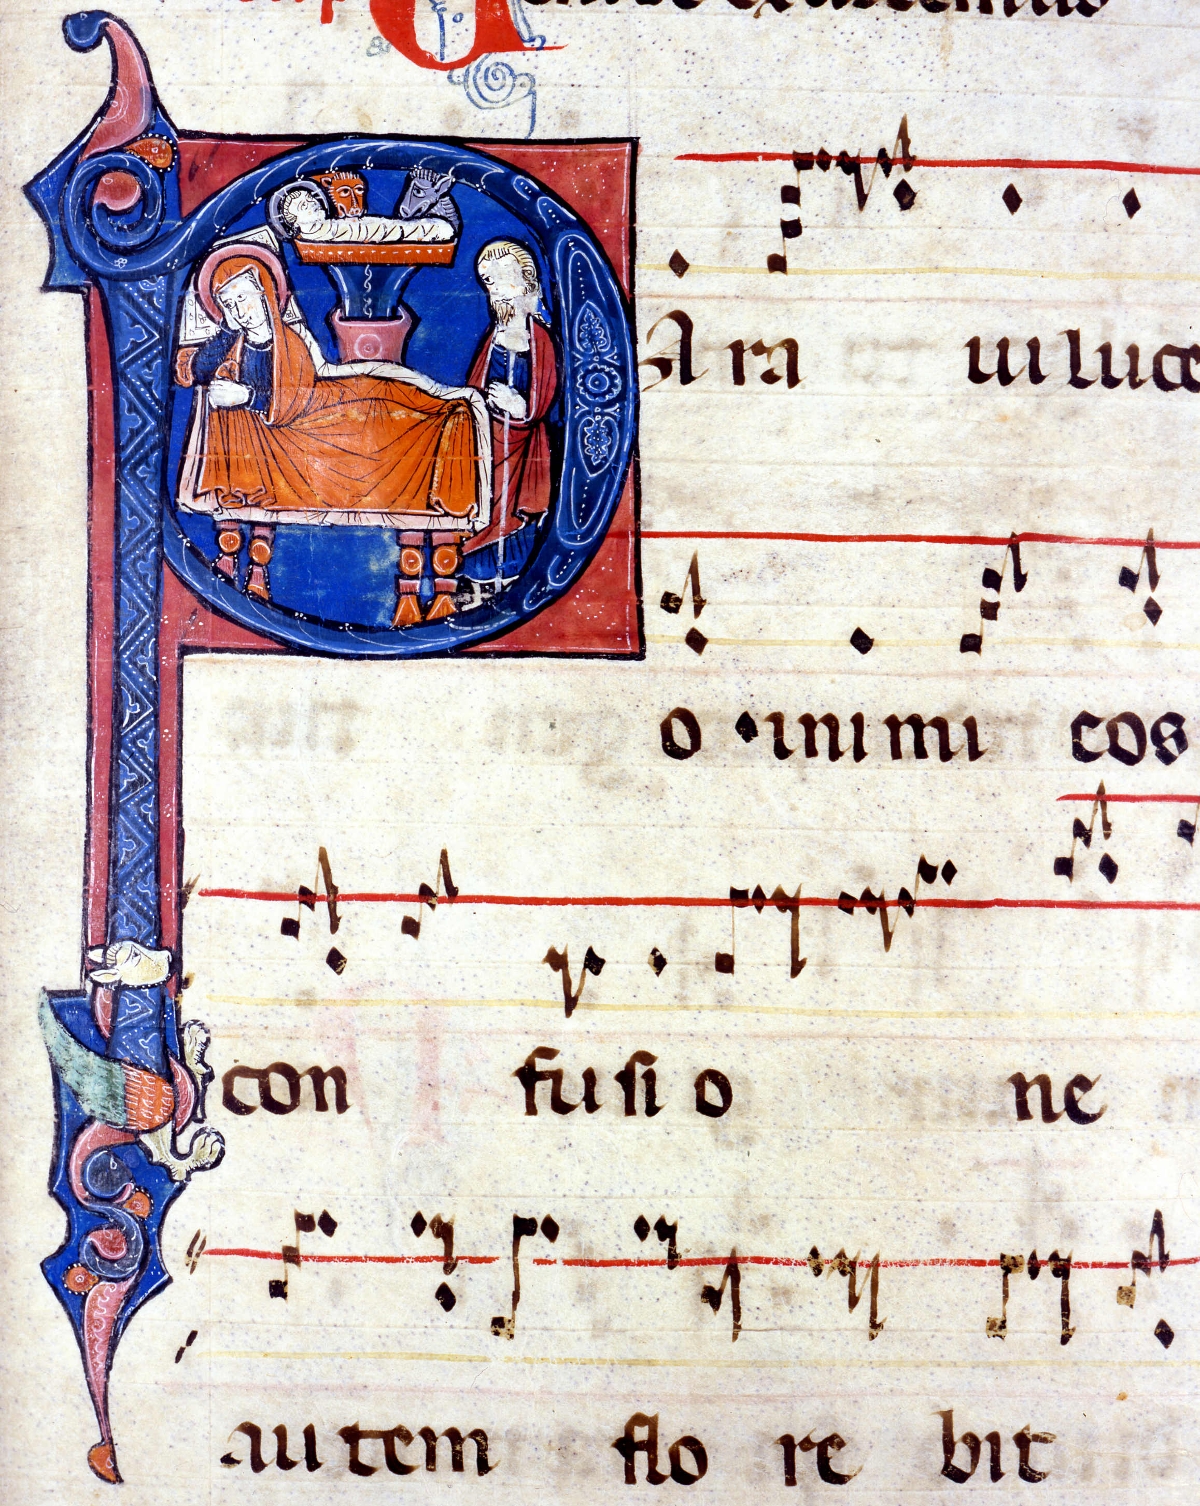 PAra ui luce
o inimi cos
con fu si o ne
au tem flo re bit